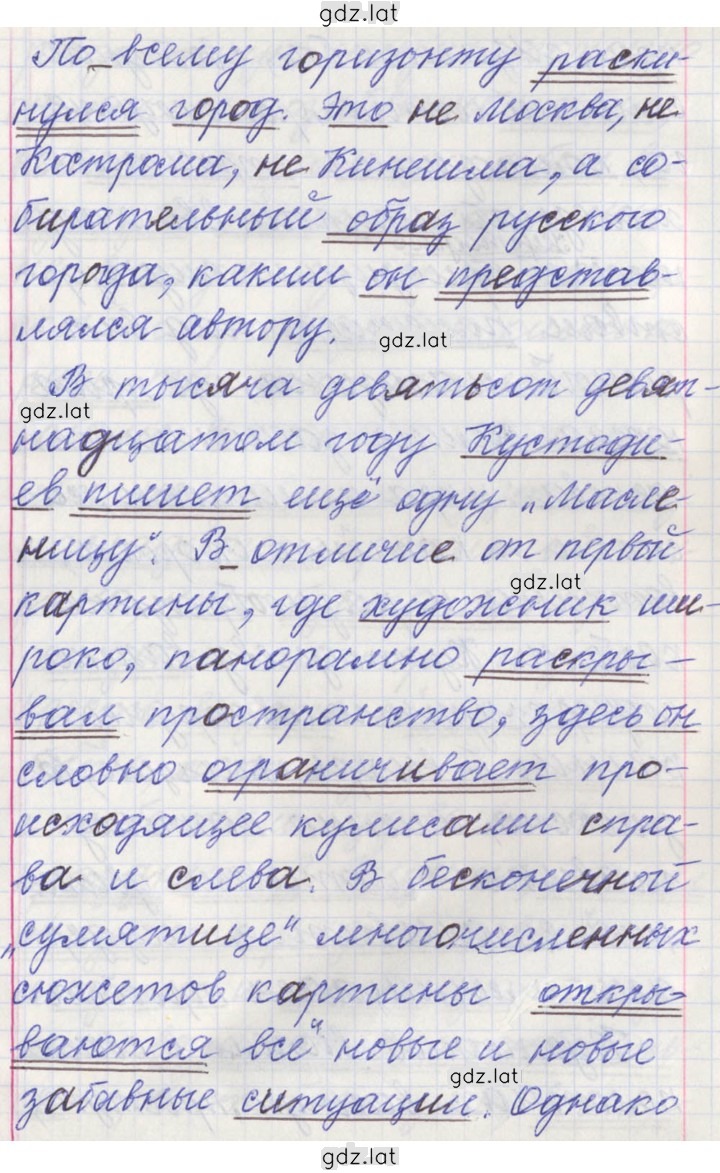 gdz.lat
По всему горизонту раски-
нулся город. Это не Москва, не
Кострома, не Кинешма, а со-
бирательный образ русского
города, каким он представ-
лялся автору.
gdz.lat
В тысяча девятьсот девят-
gdz.lat
надцатом году Кустоди-
ев пишет ещё одну „Масле
ницу". В отличие от первой
gdz.lat
картины, где художник ши-
роко, панорамно раскры-
вал пространство, здесь он
словно ограничивает про-
исходящее кулисами спра-
ва и слева. В бесконечной
„сумятице" многочисленных
сюжетов картины откры-
ваются всё новые и новые
gdz.lat
забавные ситуации. Однако
gdz.lat